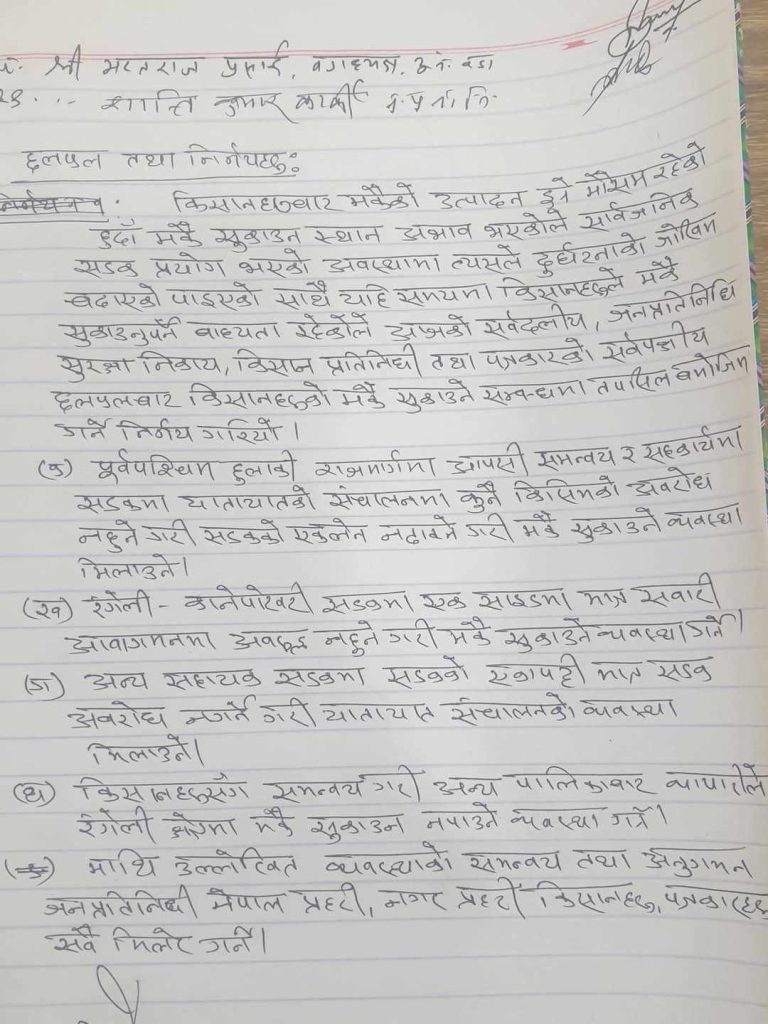 श्री भरतराज प्रसाई,
२३. .. शान्ति कुमार कार्की प्र. ना. नि.
छलफल तथा निर्णयहरु:
किसानहरुबाट मकैको उत्पादन हुने मौसम रहेको
हुदाँ मकै सुकाउन स्थान अभाव भएकोले सार्वजनिक
सडक प्रयोग भएको अवस्थामा त्यसले दुर्घटनाको जोखिम
बढाएको पाइएको साथै यहि समयमा किसानहरुले मकै
सुकाउनुपर्ने बाध्यता रहेकोले आजको सर्वदलीय, जनप्रतिनिधि
सुरक्षा निकाय, किसान प्रतिनिधी तथा पत्रकारको सर्वपक्षीय
छलफलबाट किसानहरुको मकै सुकाउने सम्बन्धमा तपसिल बमोजिम
गर्ने निर्णय गरियो।
(क) पूर्वपश्चिम हुलाकी राजमार्गमा आपसी समन्वय र सहकार्यमा
सडकमा यातायातको संचालनमा कुनै किसिमको अवरोध
नहुने गरी सडकको एकलेन नढाक्ने गरी मकै सुकाउने व्यवस्था
मिलाउने।
(ख) रंगेली - कानेपोखरी सडकमा एक साइडमा मात्र सवारी
आवागमनमा अवरुद्ध नहुने गरी मकै सुकाउने व्यवस्था गर्ने।
(ग) अन्य सहायक सडकमा सडकको एकापट्टी मात्र सडक
अवरोध नगर्ने गरी यातायात संचालनको व्यवस्था
मिलाउने।
(घ) किसानहरुसँग समन्वय गरी अन्य पालिकाबाट व्यापारीले
रंगेली क्षेत्रमा मकै सुकाउन नपाउने व्यवस्था गर्ने।
(ङ) माथि उल्लेखित व्यवस्थाको समन्वय तथा अनुगमन
जनप्रतिनिधी नेपाल प्रहरी, नगर प्रहरी किसानहरु, पत्रकारहरु
सबै मिलेर गर्ने।